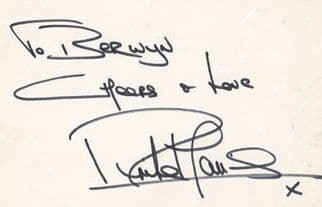 To Berwyn
Cheers + Love
x